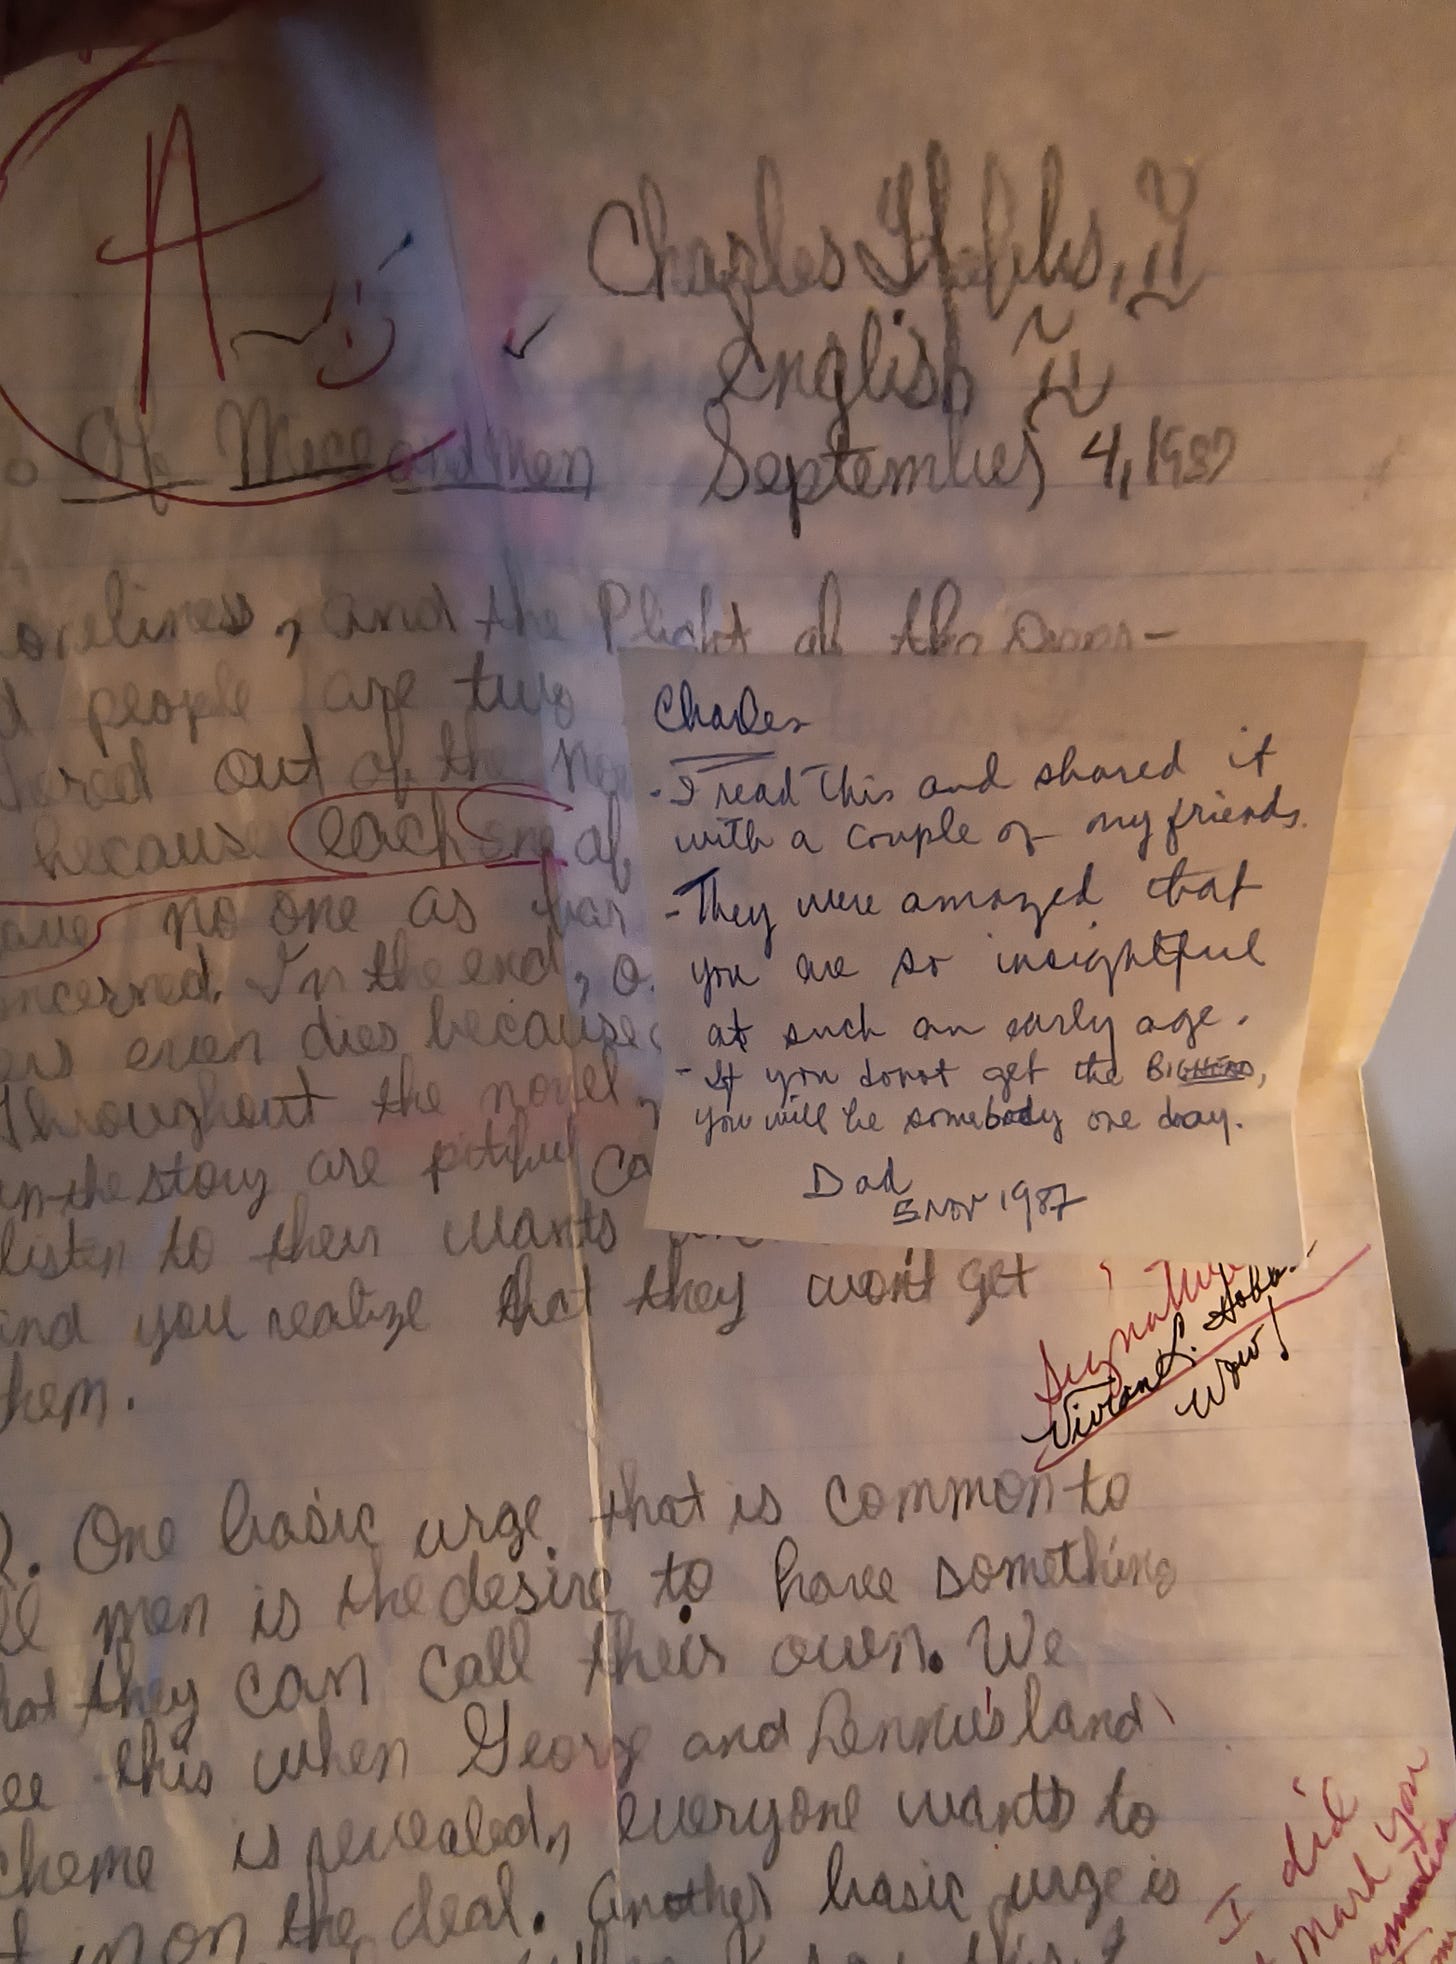 A-
Charles Hobbs, II
English II
September 4, 1987
Of Mice and Men
oneliness, and the Plight of the Oppr-
d people are two
ered out of the no
because each one of
ave no one as far
ncerned. In the end, o
ers even dies because
Throughout the novel,
in the story are pitiful ca
listen to their wants
and you realize that they won't get
hem.
Charles
- I read This and shared it
with a couple of my friends.
- They were amazed that
you are so insightful
at such an early age.
- If you donot get the BIGHEAD,
you will be somebody one day.
Dad
5 Nov 1987
Signature
Vivian L. Hobbs
Wow!
2. One basic urge that is common to
ll men is the desire to have something
hat they can call their own. We
ee this when George and Lennie's land
cheme is revealed, everyone wants to
t in on the deal. Another basic urge is
I did
mark you